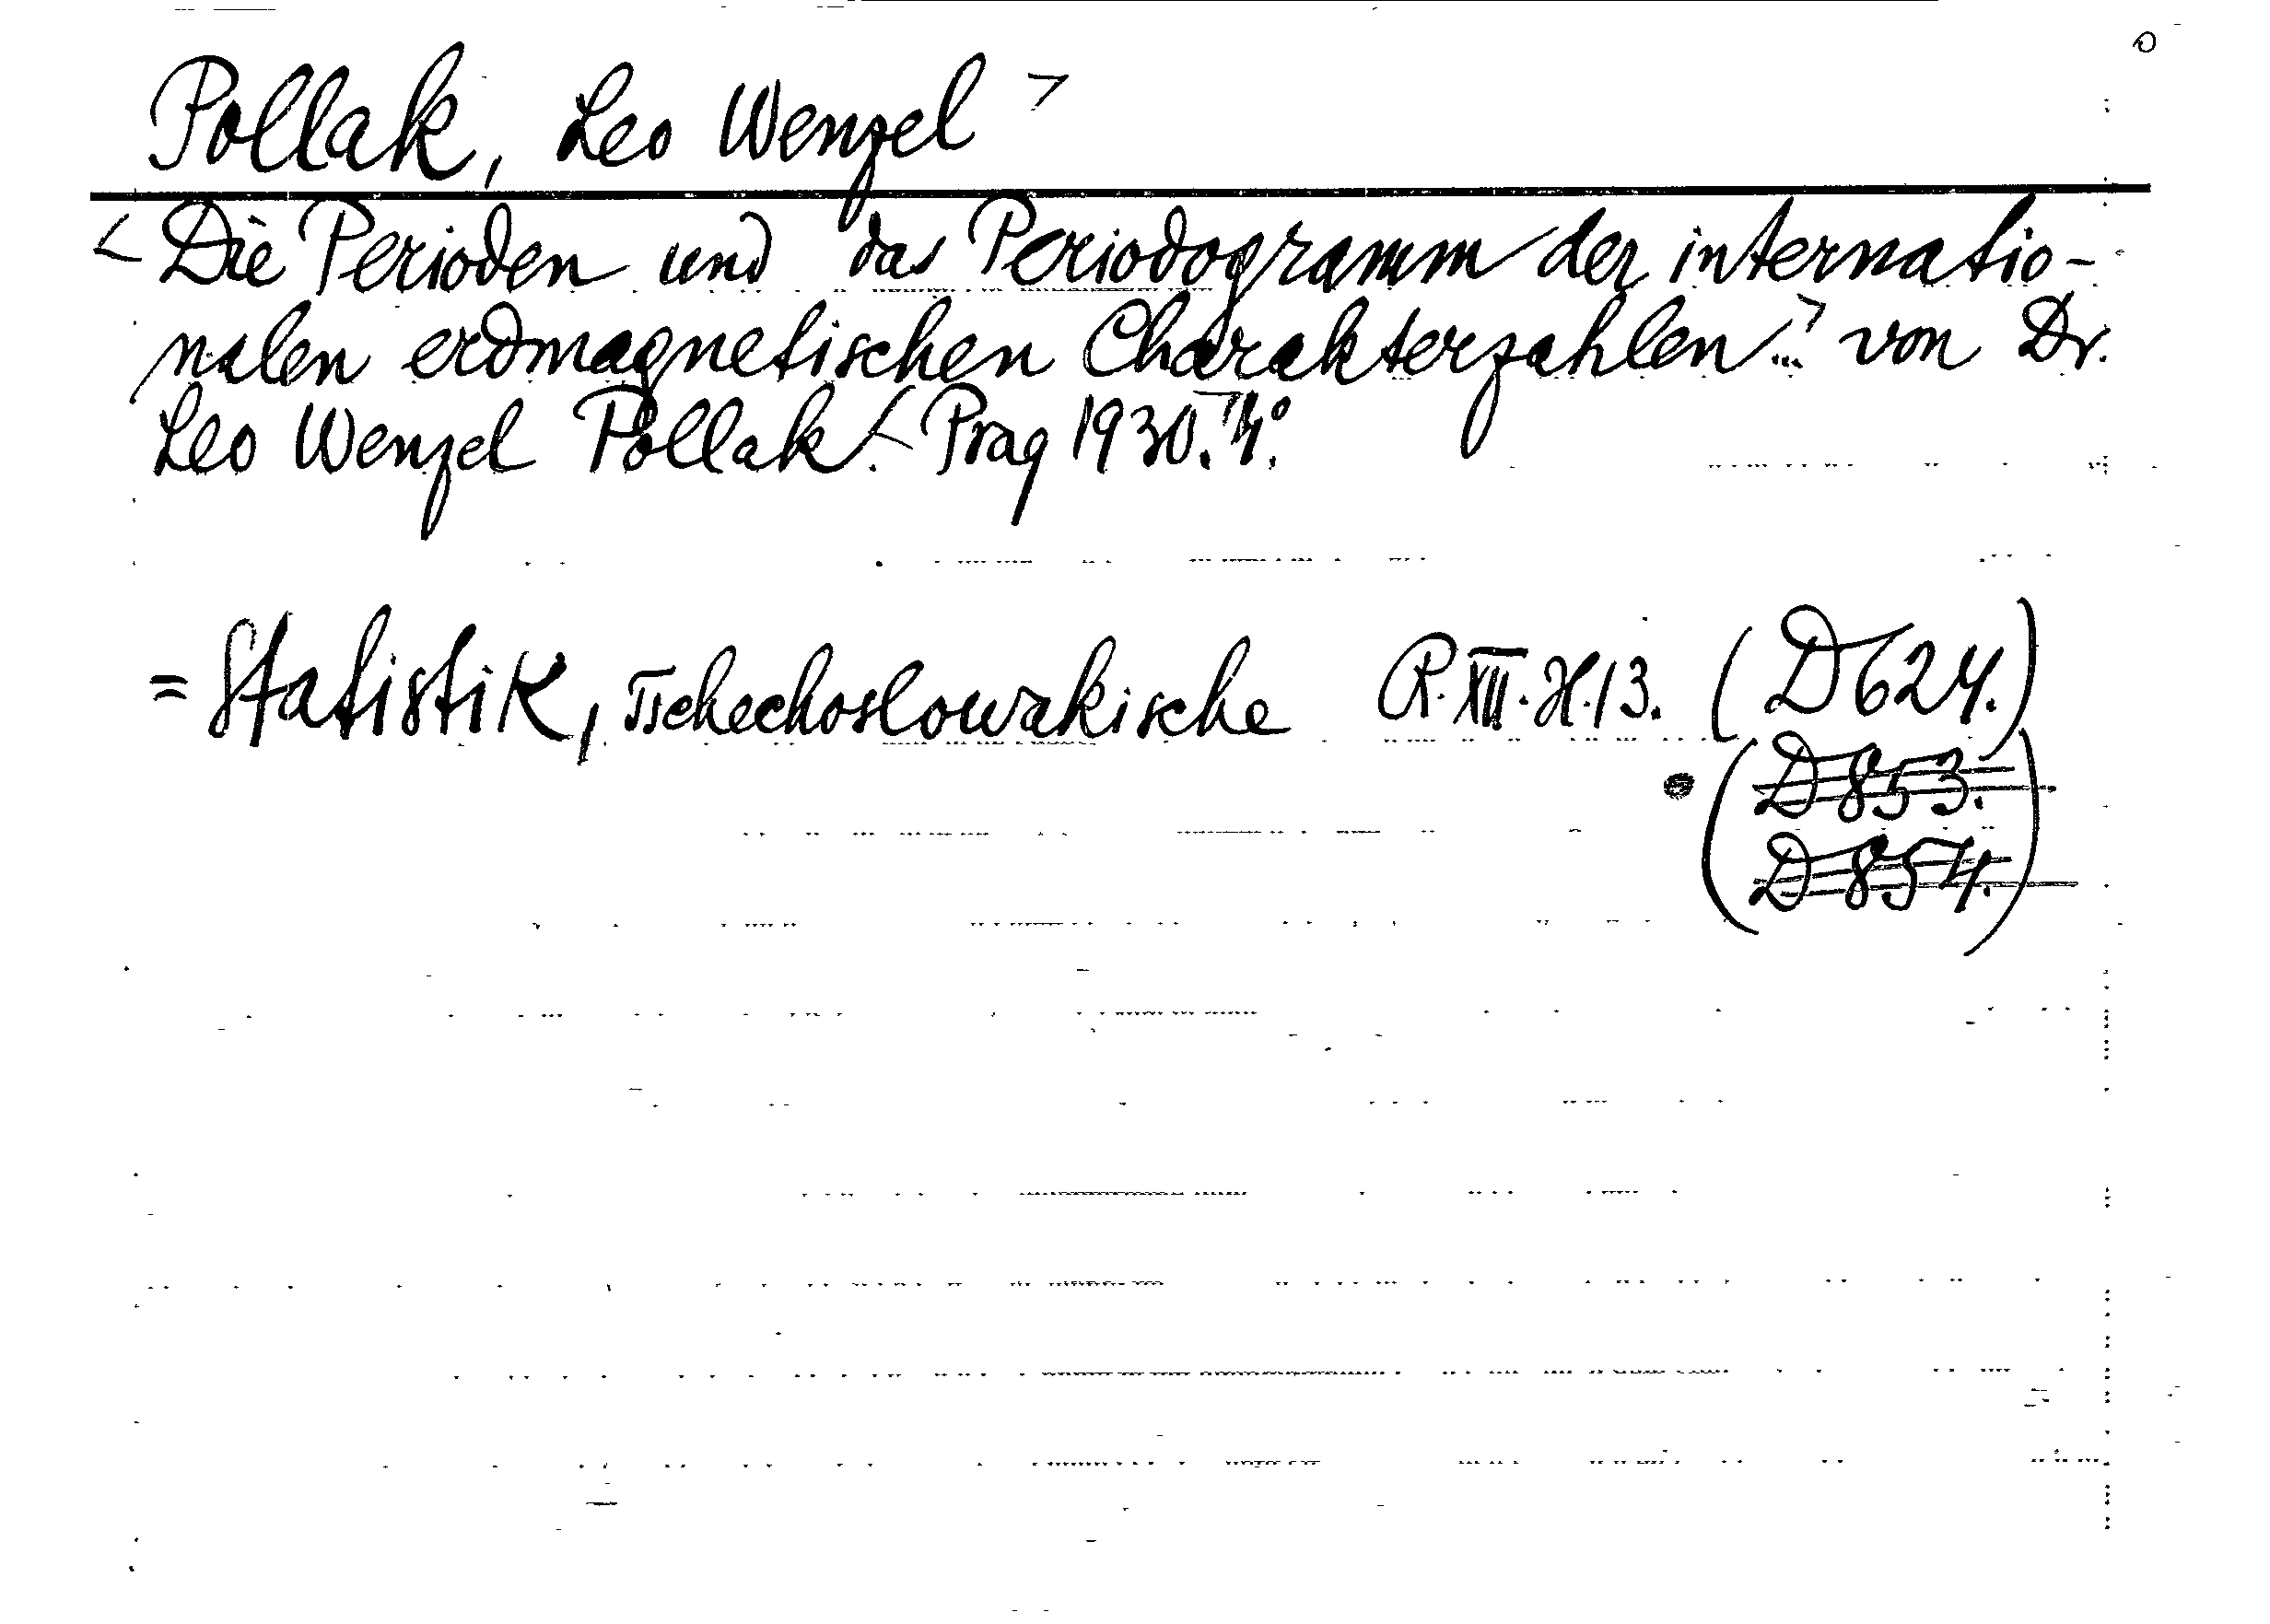 Pollak, Leo Wenzel >
< Die Perioden und das Periodogramm der internatio-
nalen erdmagnetischen Charakterzahlen...> von Dr.
Leo Wenzel Pollak.< Prag 1930.> 4°.
= Statistik, Tschechoslowakische R. XII. H. 13. (D624.)
(D853.
D854.)